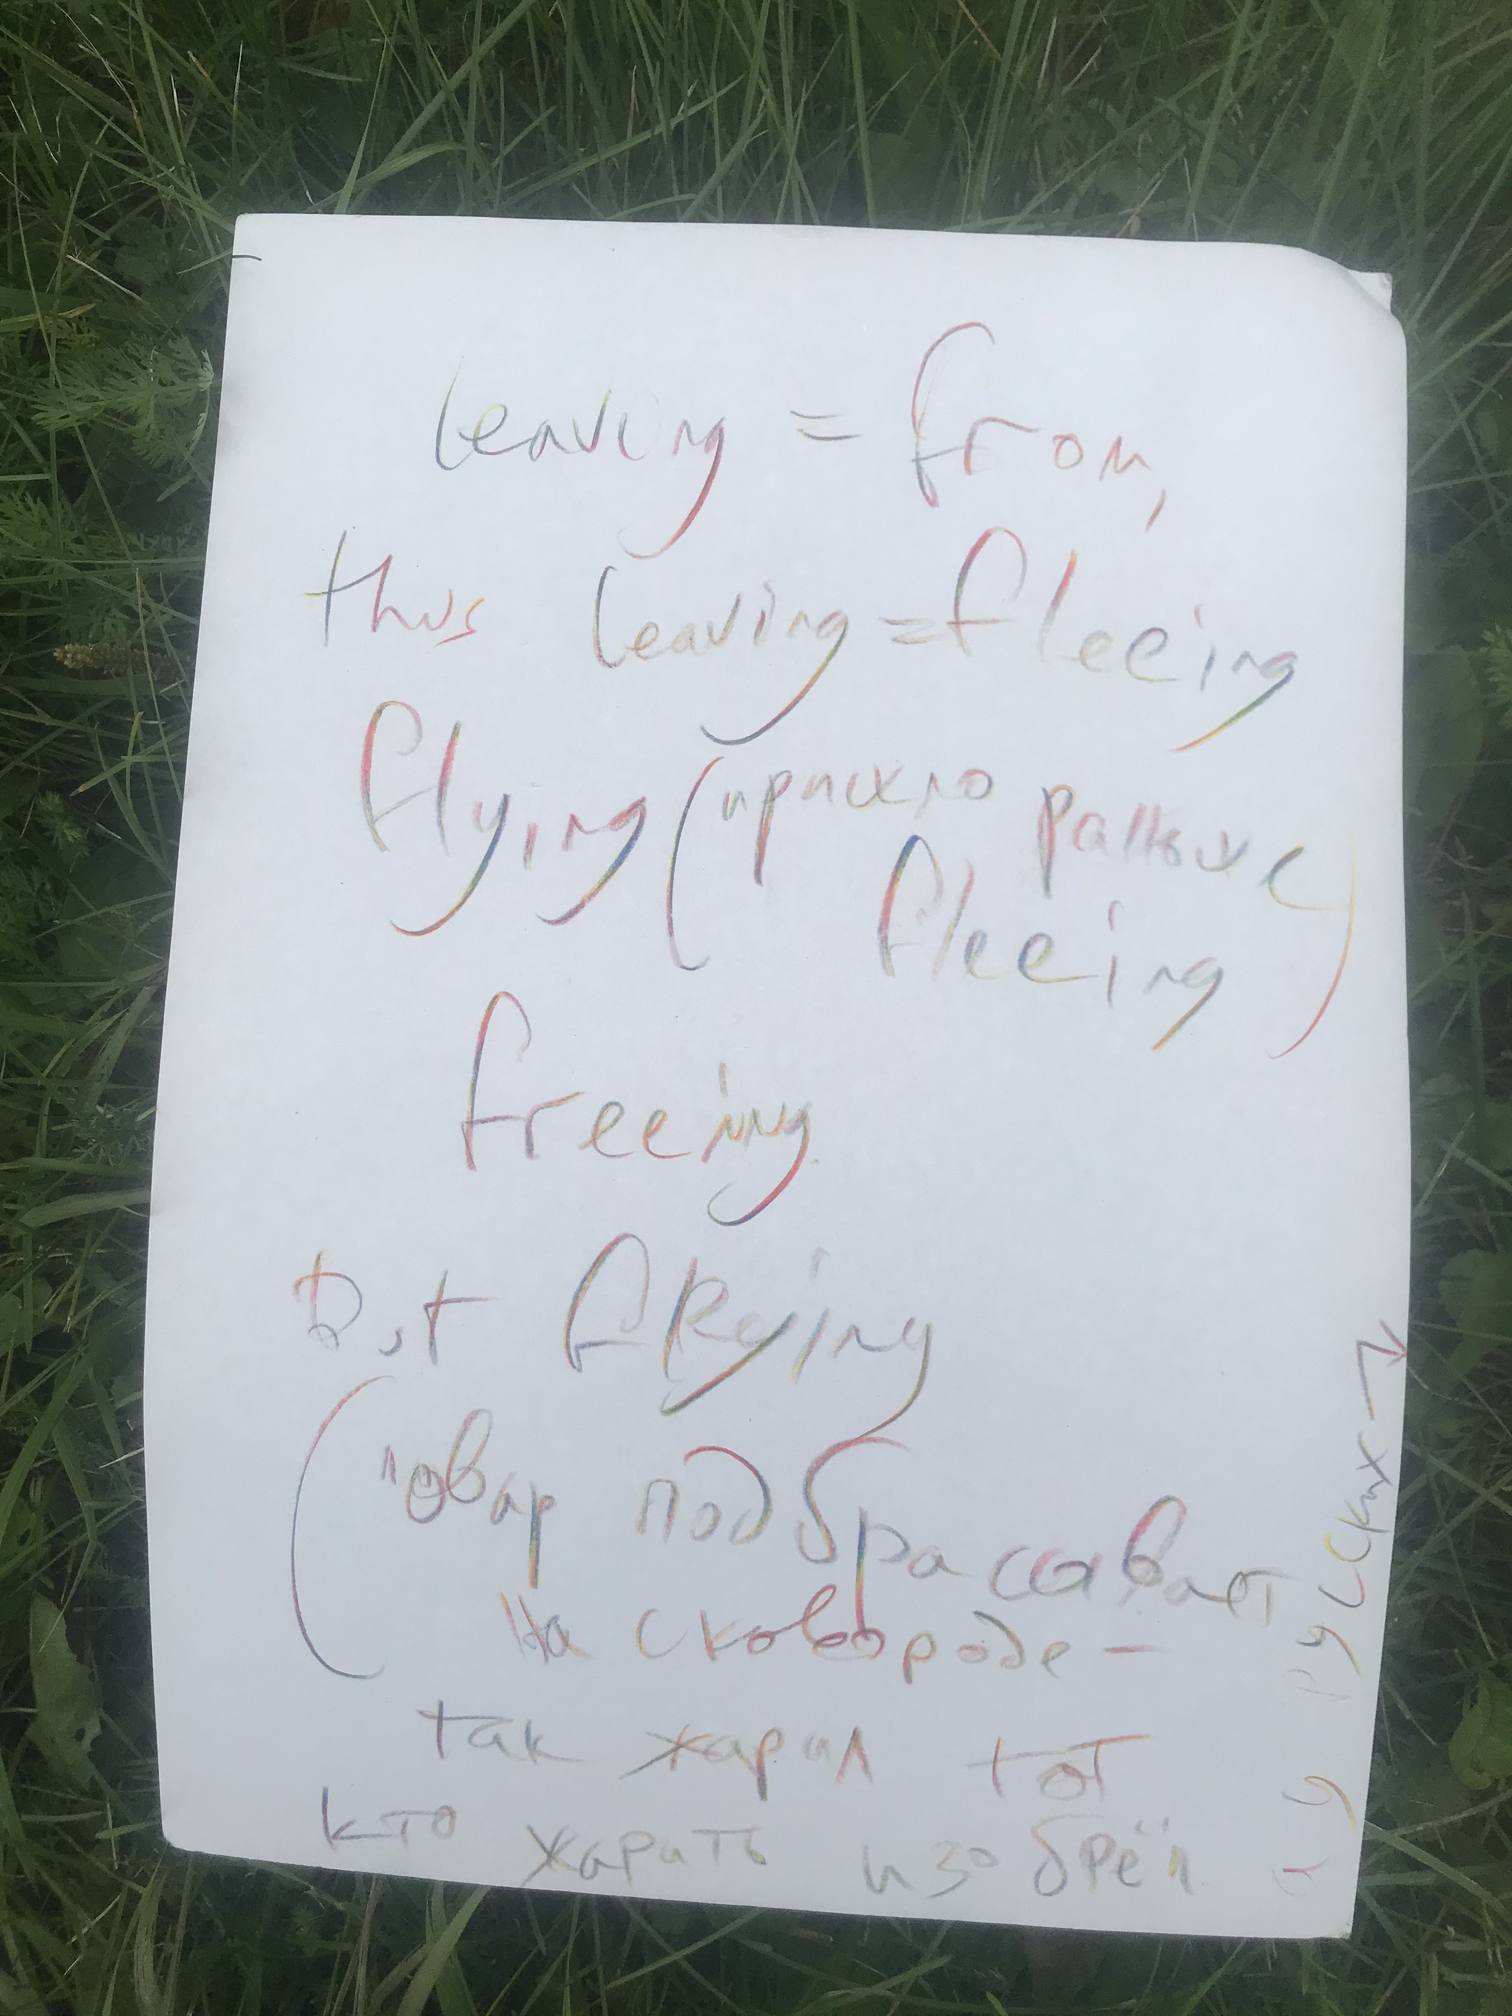 leaving = from,
thus leaving = fleeing
flying (пришло раньше
fleeing)
freeing
but fRying
(повар подбрасавает
на сковороде -
так жарил тот
кто жарить изобрёл
а у русских →